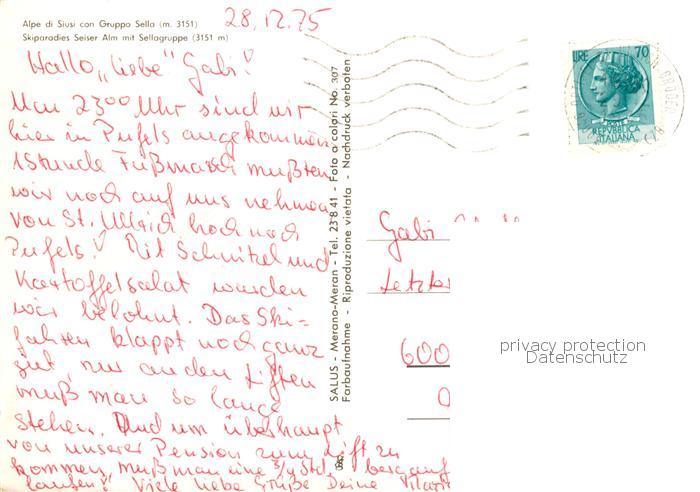 Alpe di Siusi con Gruppo Sella (m. 3151)
Skiparadies Seiser Alm mit Sellagruppe (3151 m)
28.12.75
Hallo, "liebe" Gabi!
Um 23⁰⁰ Uhr sind wir
hier in Pufels angekommen
1 Stunde Fußmarsch mußten
wir noch auf uns nehmen
von St. Ulrich hoch nach
Pufels! Mit Schnitzel und
Kartoffelsalat wurden
wir belohnt. Das Ski=
fahren klappt noch ganz
gut, nur an den Liften
muß man so lange
stehen. Und um überhaupt
von unserer Pension zum Lift zu
kommen, muß man eine 3/4 Std. bergauf
laufen! Viele liebe Grüße Deine
SALUS - Merano-Meran - Tel. 23 8 41 - Foto a colori No. 307
Farbaufnahme - Riproduzione vietata - Nachdruck verboten
LIRE 70
REPVBBLICA
ITALIANA
Gabi
Letzter
600
privacy protection
Datenschutz